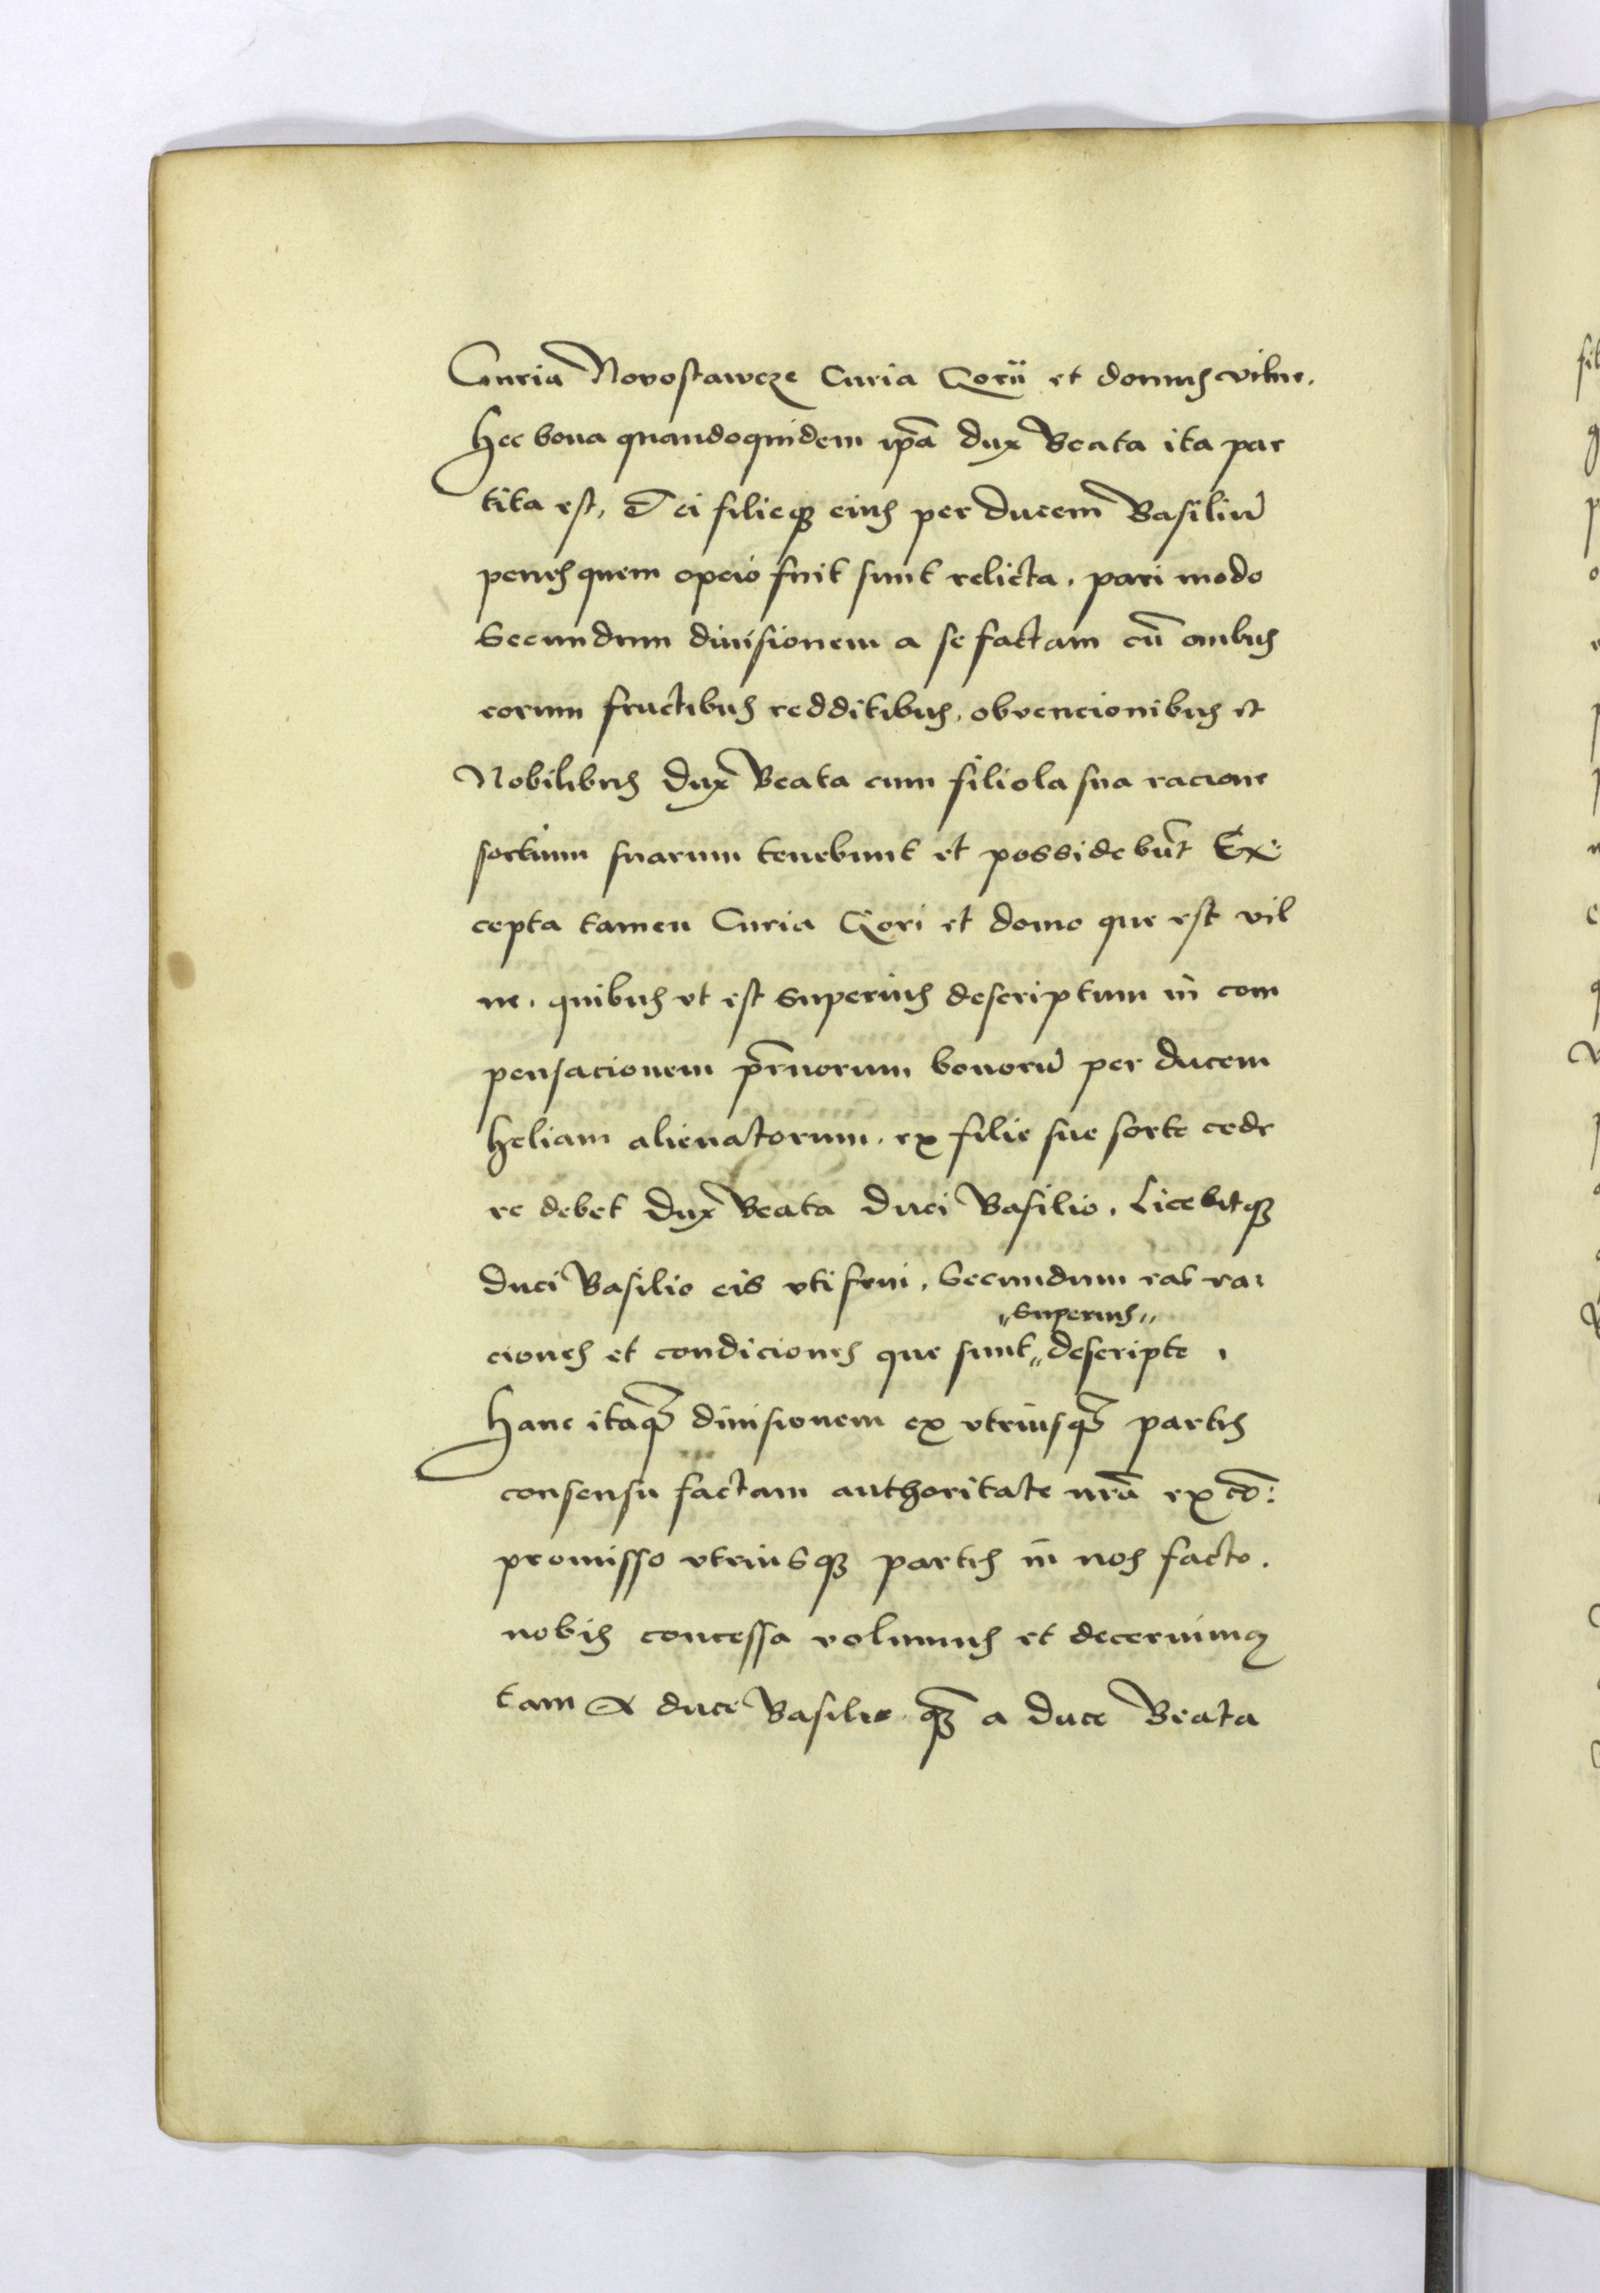 Curia Novostawcze Curia Qorii et domus vilne.
Hec bona quandoquidem ipā dux Beata ita par
tita est, ei filieqz eius per ducem Basiliū
penes quem opcio fuit sunt relicta. pari modo
Secundum diuisionem a se factam cū omībus
eorum fructibus redditibus, obvencionibus et
Nobilibus dux Beata cum filiola sua racione
sortium suarum tenebunt et possidebūt Ex=
cepta tamen Curia Qori et domo que est vil
ne. quibus vt est Superius descriptum in com
pensacionem prnorum bonorū per ducem
heliam alienatorum. ex filie sue sorte cede
re debet dux Beata duci Basilio. Licebitqz
duci Basilio eis vti frui. Secundum eas ra=
"Superius"
ciones et condiciones que sunt " descripte.
Hanc itaqz diuisionem ex vtriusqz partis
consensu factam authoritate nrā ex cō=
promisso vtriusqz partis in nos facto.
nobis concessa volumus et decernimus
tam A duce Basilio qz a duce Beata